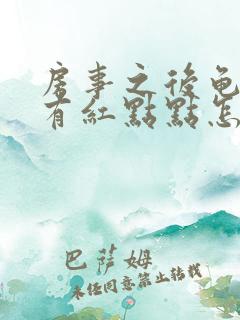 房事之後龟
有紅點點怎
巴萨姆
未经同意禁止转载